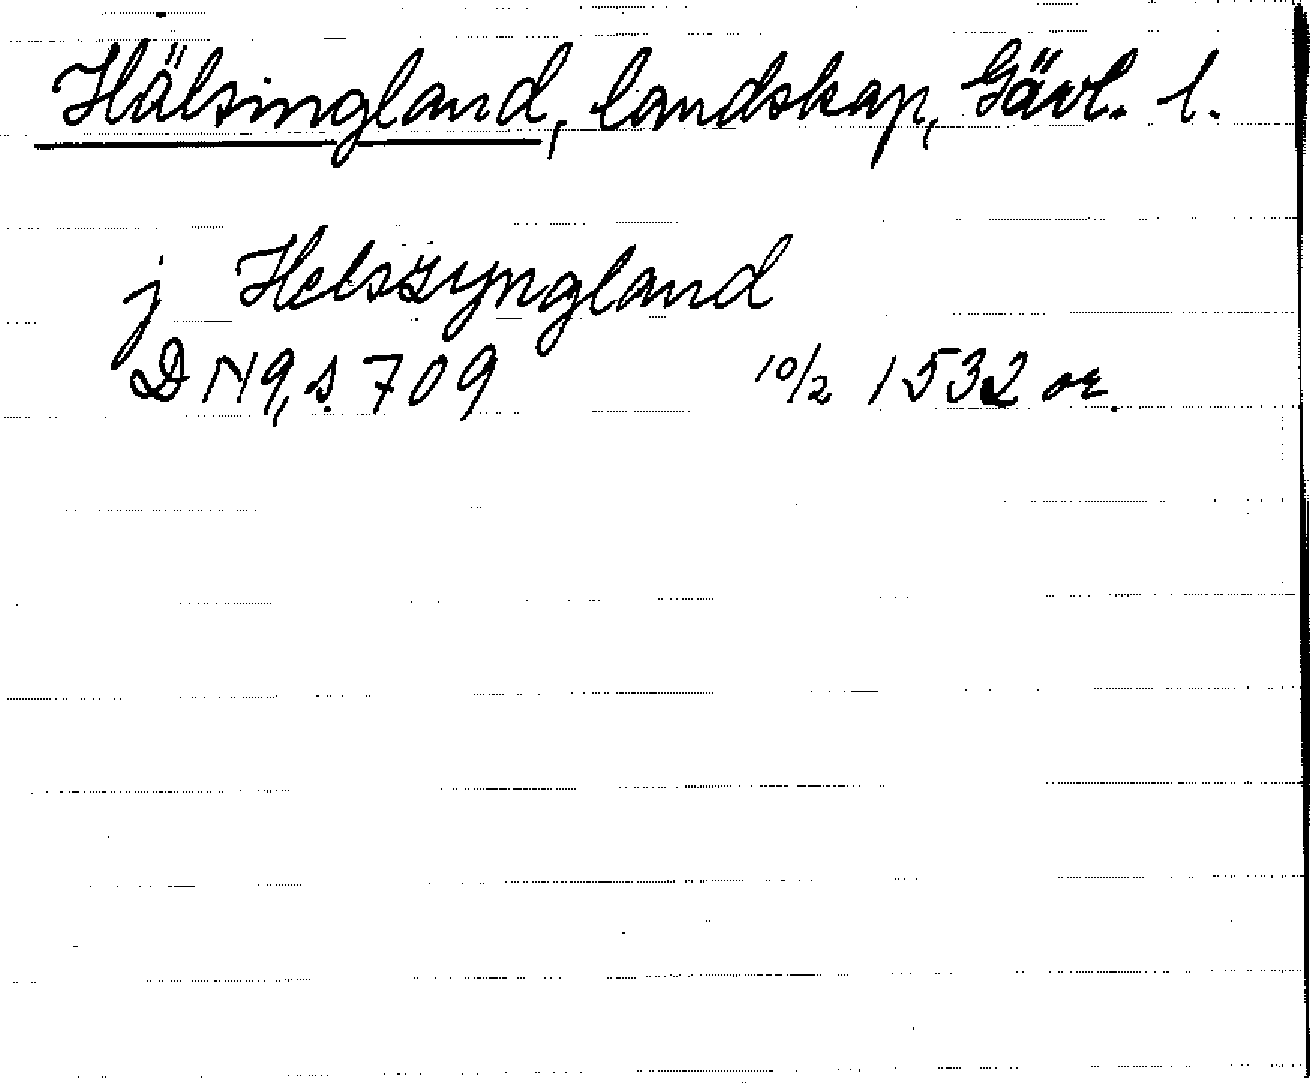 Hälsingland, landskap, Gävl. l.
j Helszyngland
DN9, s. 709 10/2 1532 or.